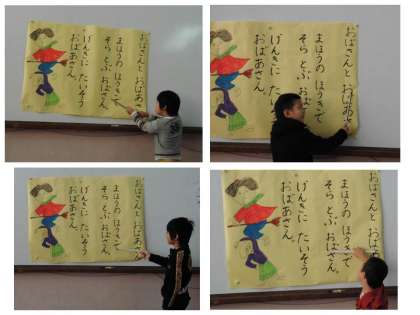 おばさんと おばあ
まほうの ほうきで
そら とぶ おばさん。
げんきに たいそう
おばあさん。
おばさんと おばあさ
まほうの ほうきで
そら とぶ おば
げんきに たいそう
おばあさん。
おばさんと おばあさん
まほうの ほうきで
そら とぶ おばさん。
げんきに たいそう
おばあさん。
おばさんと おばあさ
まほうの ほうきで
そら とぶ おばさん。
げんきに たいそう
おばあさん。